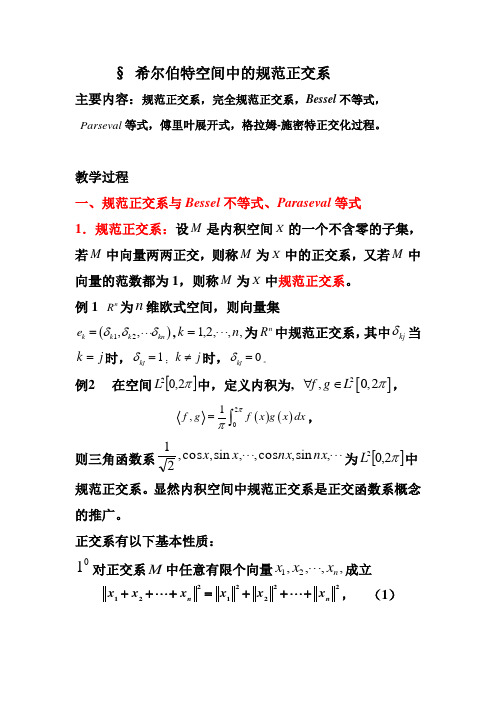 § 希尔伯特空间中的规范正交系
主要内容：规范正交系，完全规范正交系，Bessel 不等式，
Parseval 等式，傅里叶展开式，格拉姆-施密特正交化过程。
教学过程
一、规范正交系与 Bessel 不等式、Paraseval 等式
1．规范正交系：设 M 是内积空间 X 的一个不含零的子集，
若 M 中向量两两正交，则称 M 为 X 中的正交系，又若 M 中
向量的范数都为 1，则称 M 为 X 中规范正交系。
例 1 Rⁿ 为 n 维欧式空间，则向量集
e_k = (δ_{k1}, δ_{k2}, ⋯ δ_{kn}), k = 1,2,⋯, n, 为 Rⁿ 中规范正交系，其中 δ_{kj} 当
k = j 时，δ_{kj} = 1；k ≠ j 时，δ_{kj} = 0．
例2 在空间 L²[0,2π] 中，定义内积为，∀f, g ∈ L²[0, 2π]，
⟨f, g⟩ = 1/π ∫₀^{2π} f(x)g(x)dx，
则三角函数系 1/√2, cos x, sin x, ⋯, cos nx, sin nx, ⋯ 为 L²[0,2π] 中
规范正交系。显然内积空间中规范正交系是正交函数系概念
的推广。
正交系有以下基本性质：
1⁰ 对正交系 M 中任意有限个向量 x₁, x₂, ⋯, xₙ, 成立
‖x₁ + x₂ + ⋯ + xₙ‖² = ‖x₁‖² + ‖x₂‖² + ⋯ + ‖xₙ‖²， （1）